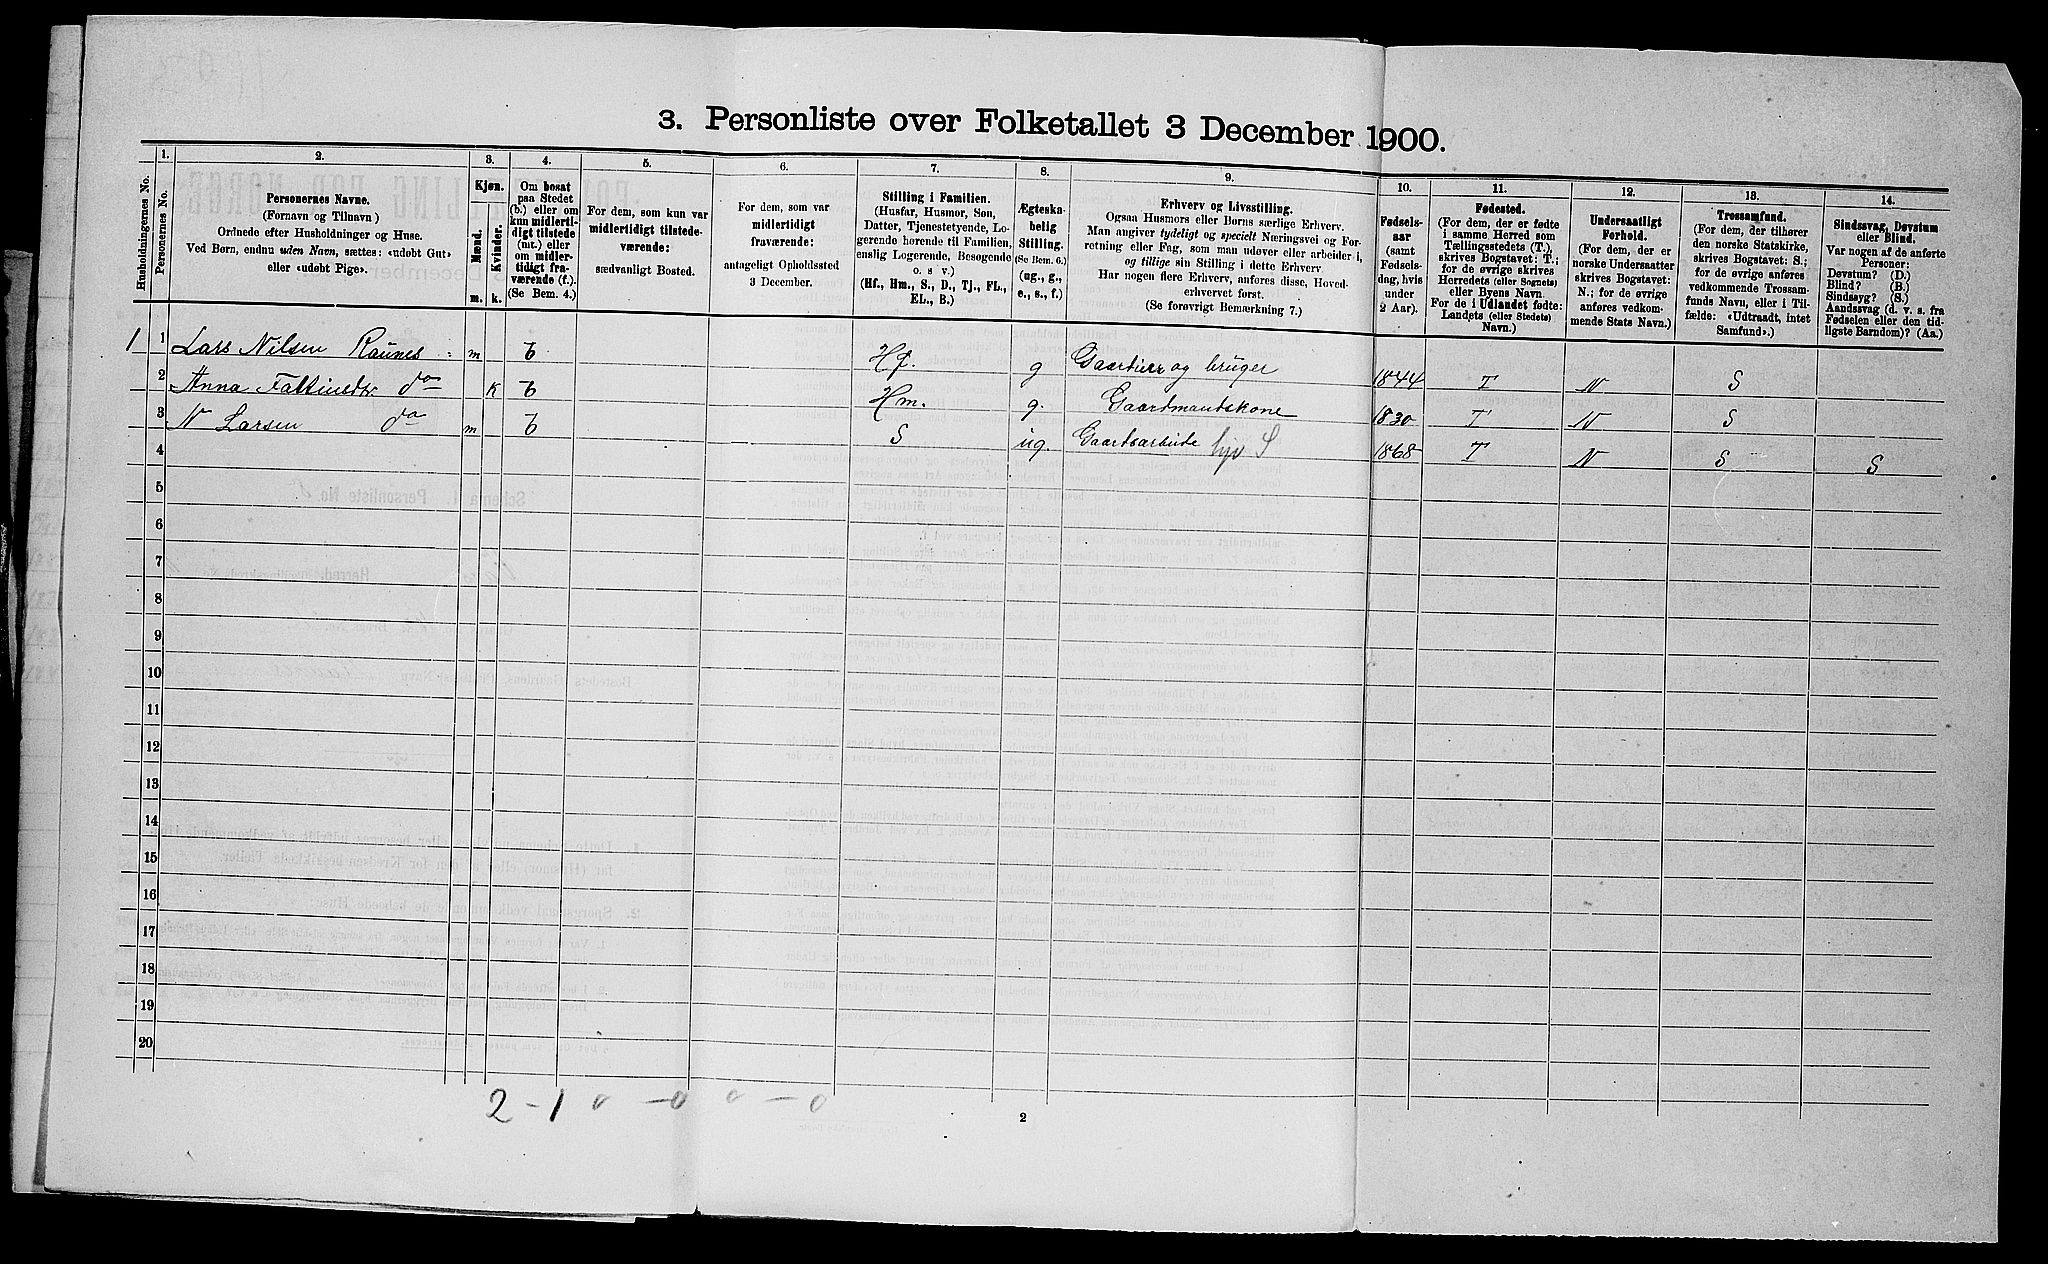 3. Personliste over Folketallet 3 December 1900.
Husholdningernes No.
1.
Personernes No.
2.
Personernes Navne.
(Fornavn og Tilnavn)
Ordnede efter Husholdninger og Huse.
Ved Børn, endnu uden Navn, sættes: «udøbt Gut»
eller «udøbt Pige».
3.
Kjøn.
Mænd.
Kvinder.
m. k.
4.
Om bosat
paa Stedet
(b.) eller om
kun midlerti-
digt tilstede
(mt.) eller
om midler-
tidigt fra-
værende (f.).
(Se Bem. 4.)
5.
For dem, som kun var
midlertidigt tilstede-
værende:
sædvanligt Bosted.
6.
For dem, som var
midlertidigt
fraværende:
antageligt Opholdssted
3 December.
7.
Stilling i Familien.
(Husfar, Husmor, Søn,
Datter, Tjenestetyende, Lo-
gerende hørende til Familien,
enslig Logerende, Besøgende
o. s v.)
(Hf., Hm., S., D., Tj., FL.,
EL., B.)
8.
Ægteska-
belig
Stilling.
(Se Bem. 6.)
(ug., g.,
e., s., f.)
9.
Erhverv og Livsstilling.
Ogsaa Husmors eller Børns særlige Erhverv.
Man angiver tydeligt og specielt Næringsvei og For-
retning eller Fag, som man udøver eller arbeider i,
og tillige sin Stilling i dette Erhverv
Har nogen flere Erhverv, anføres disse, Hoved-
erhvervet først.
(Se forøvrigt Bemærkning 7.)
10.
Fødsels-
aar
(samt
Fødsels-
dag, hvis
under
2 Aar).
11.
Fødested.
(For dem, der er fødte
i samme Herred som
Tællingsstedets (T.),
skrives Bogstavet: T.;
for de øvrige skrives
Herredets (eller Sognets)
eller Byens Navn.
For de i Udlandet fødte:
Landets (eller Stedets)
Navn.)
12.
Undersaatligt
Forhold.
(For dem, der er
norske Undersaatter
skrives Bogstavet:
N.; for de øvrige
anføres vedkom-
mende Stats Navn.)
13.
Trossamfund.
(For dem, der tilhører
den norske Statskirke,
skrives Bogstavet: S.;
for de øvrige anføres
vedkommende Trossam-
funds Navn, eller i Til-
fælde: «Udtraadt, intet
Samfund».)
14.
Sindssvag, Døvstum
eller Blind.
Var nogen af de anførte
Personer:
Døvstum? (D.)
Blind? (B.)
Sindssyg? (S.)
Aandssvag (d. v. s. fra
Fødselen eller den tid-
ligste Barndom)? (Aa.)
1 1 Lars Nilsen Raunes m b Hf. g Gaardeier og bruger 1844 T N S
2 Anna Falkinedtr. do k b Hm. g. Gaardmandskone 1830 T N S
3 N Larsen do m b S ug. Gaardsarbeide hjv S 1868 T N S S
4
5
6
7
8
9
10
11
12
13
14
15
16
17
18
19
20
2 - 1 0 - 0 0 - 0
2